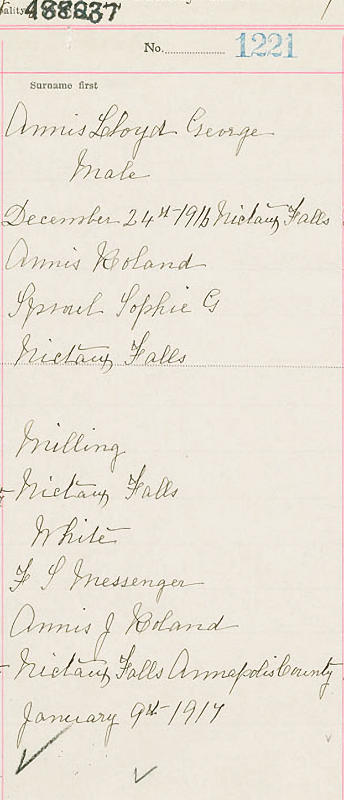 488837
No. 1221
Surname first
Annis Lloyd George
Male
December 24th 1916 Nictaux Falls
Annis Boland
Sproul Sophie G
Nictaux Falls
Milling
Nictaux Falls
White
F S Messenger
Annis J Boland
Nictaux Falls Annapolis County
January 9th 1917